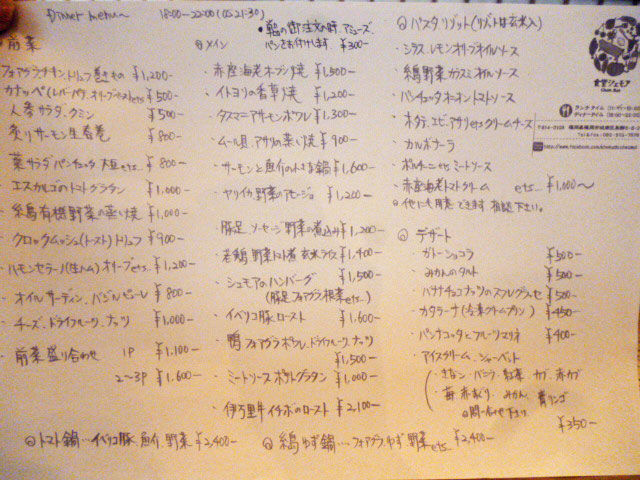 Dinner menu~ 18:00-22:00 (OS 21:30)
前菜
・フォアグラチキントリュフ巻きもの ¥1,200-
・カナッペ(レバーパテ、オリーブペーストetc ¥500-
・人参サラダ、クミン ¥500-
・炙りサーモン生春巻 ¥800-
・葉サラダ パンチェッタ 大豆etc. ¥800-
・エスカルゴのトマトグラタン ¥1,000-
・糸島有機野菜の蒸し焼 ¥1,000-
・クロックムッシュ(トースト)トリュフ ¥900-
・ハモンセラーノ(生ハム)オリーブetc. ¥1,200-
・オイルサーディン、バジルピューレ ¥800-
・チーズ、ドライフルーツ、ナッツ ¥1,000-
・前菜盛り合わせ 1P ¥1,100-
2~3P ¥1,600-
・鍋の御注文の時、アミューズ
パンをお付けします ¥300-
◎メイン
・赤座海老オーブン焼 ¥1,500-
・イトヨリの香草焼 ¥1,200-
・タスマニアサーモンポワレ ¥1,300-
・ムール貝、アサリの蒸し焼 ¥900-
・サーモンと魚介のトマト鍋 ¥1,600-
・ヤリイカ、野菜のアヒージョ ¥1,200-
・豚足 ソーセージ 野菜の煮込み ¥1,200-
・若鶏 野菜トマト煮 玄米ライス ¥1,400-
・シェモアのハンバーグ ¥1,500-
(豚足 フォアグラ、根菜etc...)
・イベリコ豚ロースト ¥1,600-
・鴨 フォアグラポワレ、ドライフルーツ、ナッツ
¥1,500-
・ミートソースポテトグラタン ¥1,000-
・伊万里牛イチボのロースト ¥2,100-
◎パスタ リゾット(リゾットは玄米入)
・シラス、レモンオリーブオイルソース
・糸島野菜 カラスミオイルソース
・パンチェッタオニオントマトソース
・ホタテ、エビ、アサリetcクリームソース
・カルボナーラ
・ポルチーニetcミートソース
・赤座海老トマトクリーム etc... ¥1,000~
◎他にも用意できます 相談下さい。
◎デザート
・ガトーショコラ ¥500-
・みかんのタルト ¥500-
・バナナチョコナッツのスフレグラッセ ¥500-
・カタラーナ(冷凍クリームプリン) ¥450-
・パンナコッタとフルーツマリネ ¥400-
・アイスクリーム、シャーベット
・きなこ・バニラ・紅茶
・苺 みかん、青リンゴ
◎問い合わせ下さい。
¥350-
◎トマト鍋...イベリコ豚、魚介、野菜 ¥2,400-
◎糸島ゆず鍋...フォアグラ、ゆず野菜etc ¥2,400-
食堂シェモア
Chez Moi
ランチタイム
ディナータイム